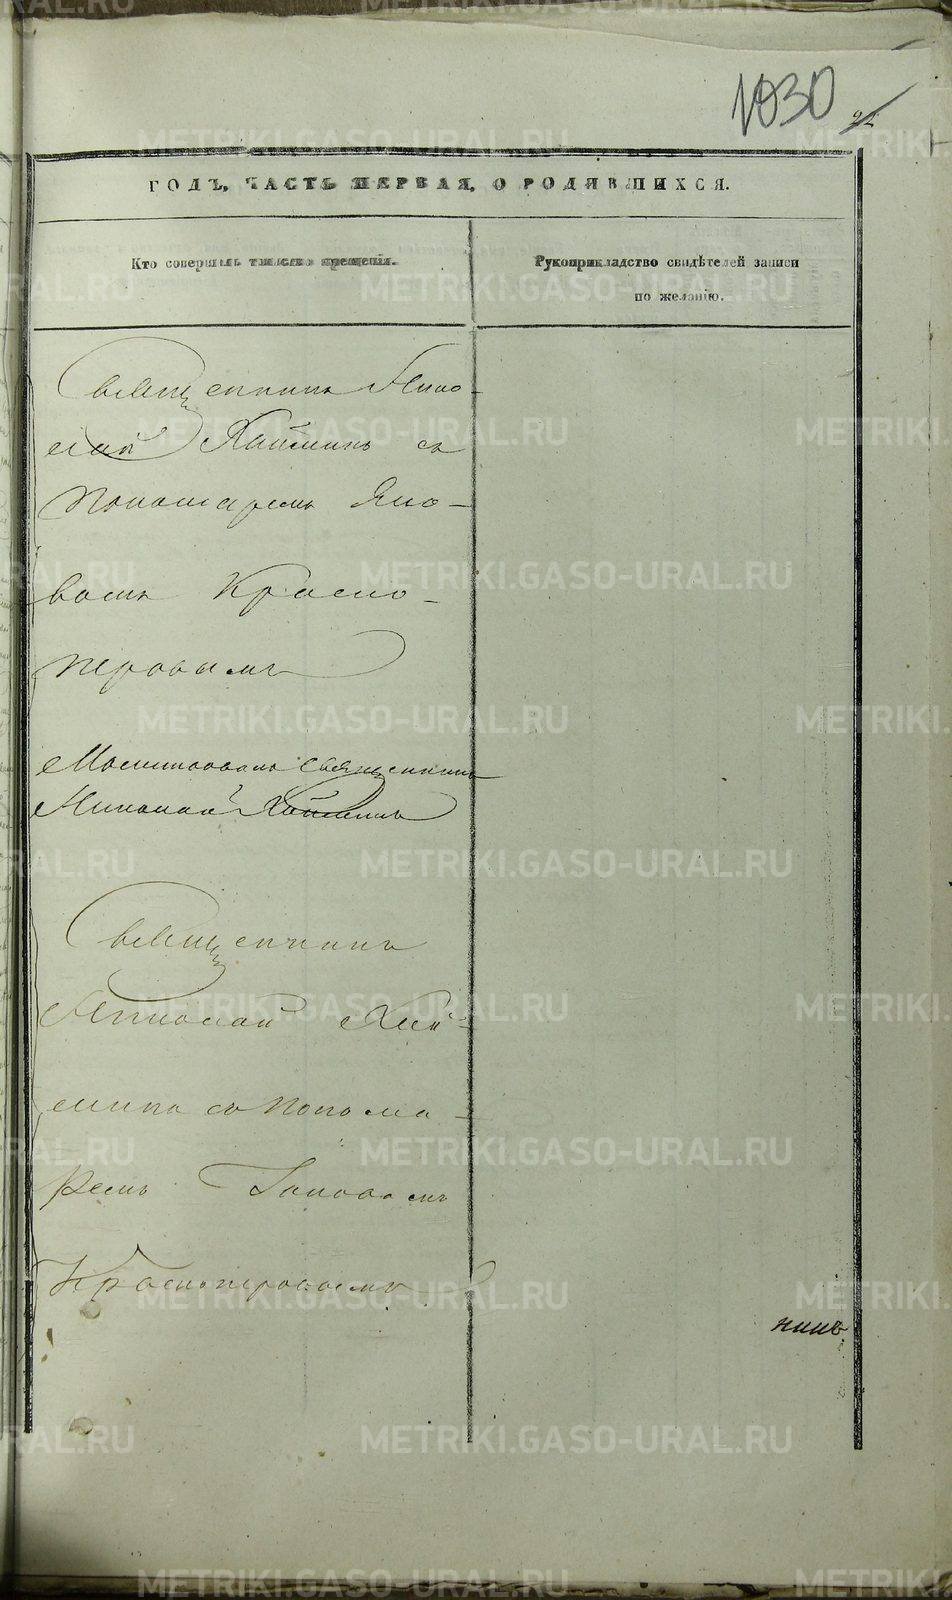 1030
ГОДЪ, ЧАСТЬ ПЕРВАЯ, О РОДИВШИХСЯ.
Кто совершалъ таинство крещенія.
Рукоприкладство свидѣтелей записи
по желанію.
Священникъ Нико-
лай Хаймин съ
Пономаремъ Яко-
вомъ Красно-
перовымъ
Священникъ
Николай Хаймин
Священникъ
Николай Хай-
минъ съ понома-
ремъ Іаковомъ
Красноперовымъ
METRIKI.GASO-URAL.RU